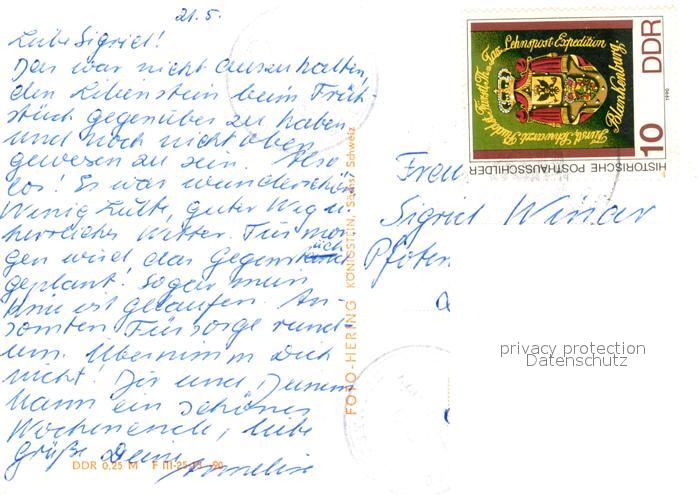 21.5.
Liebe Sigrid!
Das war nicht auszuhalten,
den Lilienstein beim Früh
stück gegenüber zu haben
und noch nicht oben
gewesen zu sein. Also
los! Es war wunderschön
Wenig Leute, guter Weg u.
herrliches Wetter. Für mor
gen wird das Gegenstück
geplant! Sogar mein
Knie ist gelaufen. An-
sonsten Fürsorge rund
um. Übernimm Dich
nicht! Dir und Deinem
Mann ein schönes
Wochenende, liebe
Grüße Deine
Annelise
DDR 0,25 M F III-25-13
FOTO-HERING KÖNIGSTEIN, Sächs. Schweiz
Frau
Sigrid
Pfoten
Fürstl. Schwarzb. Rudolst. Fürstl. Th. u. Tax. Lehnspost-Expedition
Blankenburg.
HISTORISCHE POSTHAUSSCHILDER
10 DDR
1990
privacy protection
Datenschutz